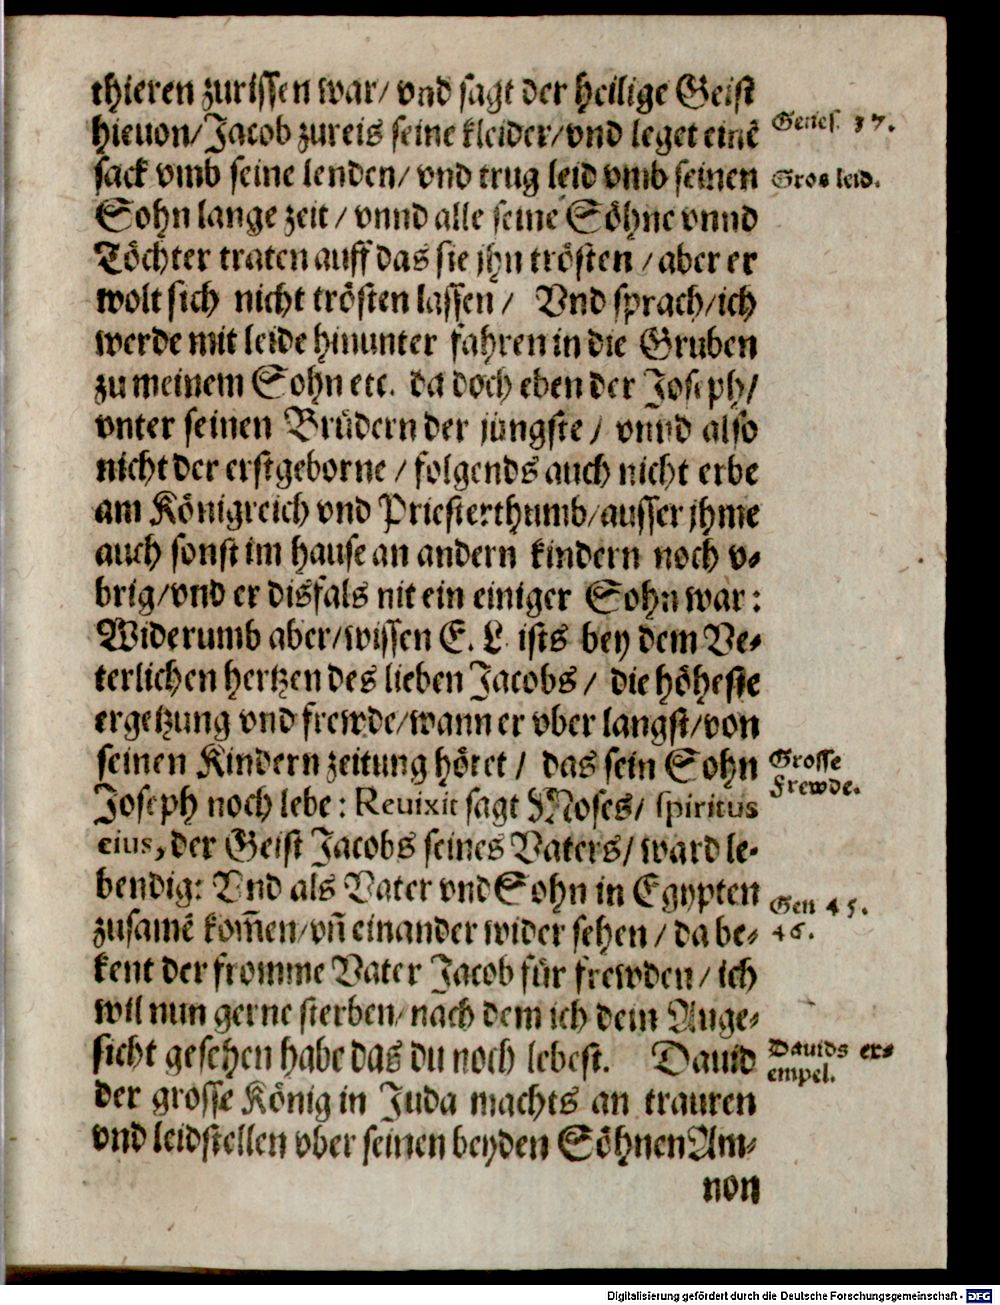 thieren zurissen war/ vnd sagt der heilige Geist
hieuon/Jacob zureis seine kleider/vnd leget einē
Genes. 37.
sack vmb seine lenden/ vnd trug leid vmb seinen
Gros leid.
Sohn lange zeit / vnnd alle seine Söhne vnnd
Töchter traten auff das sie jhn trösten / aber er
wolt sich nicht trösten lassen / Vnd sprach/ich
werde mit leide hinunter fahren in die Gruben
zu meinem Sohn etc. da doch eben der Joseph/
vnter seinen Brüdern der jüngste / vnnd also
nicht der erstgeborne / folgends auch nicht erbe
am Königreich vnd Priesterthumb/ausser jhme
auch sonst im hause an andern kindern noch v-
brig/vnd er disfals nit ein einiger Sohn war:
Widerumb aber/wissen E. L ists bey dem Ve-
terlichen hertzen des lieben Jacobs / die höheste
ergetzung vnd frewde/wann er vber langst/von
seinen Kindern zeitung höret / das sein Sohn
Grosse
Frewde.
Joseph noch lebe: Reuixit sagt Moses/ spiritus
eius, der Geist Jacobs seines Vaters/ ward le-
bendig: Vnd als Vater vnd Sohn in Egypten
Gen 45.
46.
zusamē kom̄en/vn̄ einander wider sehen / da be-
kent der fromme Vater Jacob für frewden / ich
wil nun gerne sterben/ nach dem ich dein Ange-
sicht gesehen habe das du noch lebest. Dauid
Dauids ex-
empel.
der grosse König in Juda machts an trauren
vnd leidstellen vber seinen beyden Söhnen Am-
non
Digitalisierung gefördert durch die Deutsche Forschungsgemeinschaft - DFG